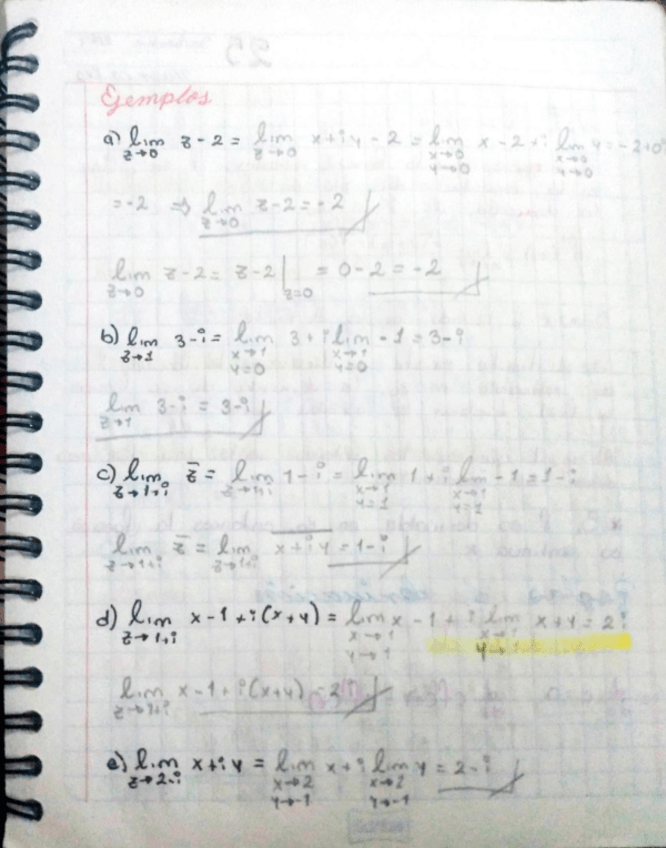 Ejemplos
a) lim z→0 z-2 = lim z→0 x+iy-2 = lim x→0 y→0 x-2+i lim x→0 y→0 y = -2+0i
=-2 ⇒ lim z→0 z-2=-2
lim z→0 z-2 = z-2| z=0 = 0-2=-2
b) lim z→1 3-i = lim x→1 y=0 3+i lim x→1 y=0 -1 = 3-i
lim z→1 3-i = 3-i
c) lim z→1+i z̄ = lim z→1+i 1-i = lim x→1 y=1 1+i lim x→1 y=1 -1=1-i
lim z→1+i z̄ = lim z→1+i x+iy = 1-i
d) lim z→1+i x-1+i(x+y) = lim x→1 y→1 x-1+i lim x→1 y→1 x+y = 2i
lim z→1+i x-1+i(x+y) = 2i
e) lim z→2-i x+iy = lim x→2 y→-1 x+i lim x→2 y→-1 y = 2-i